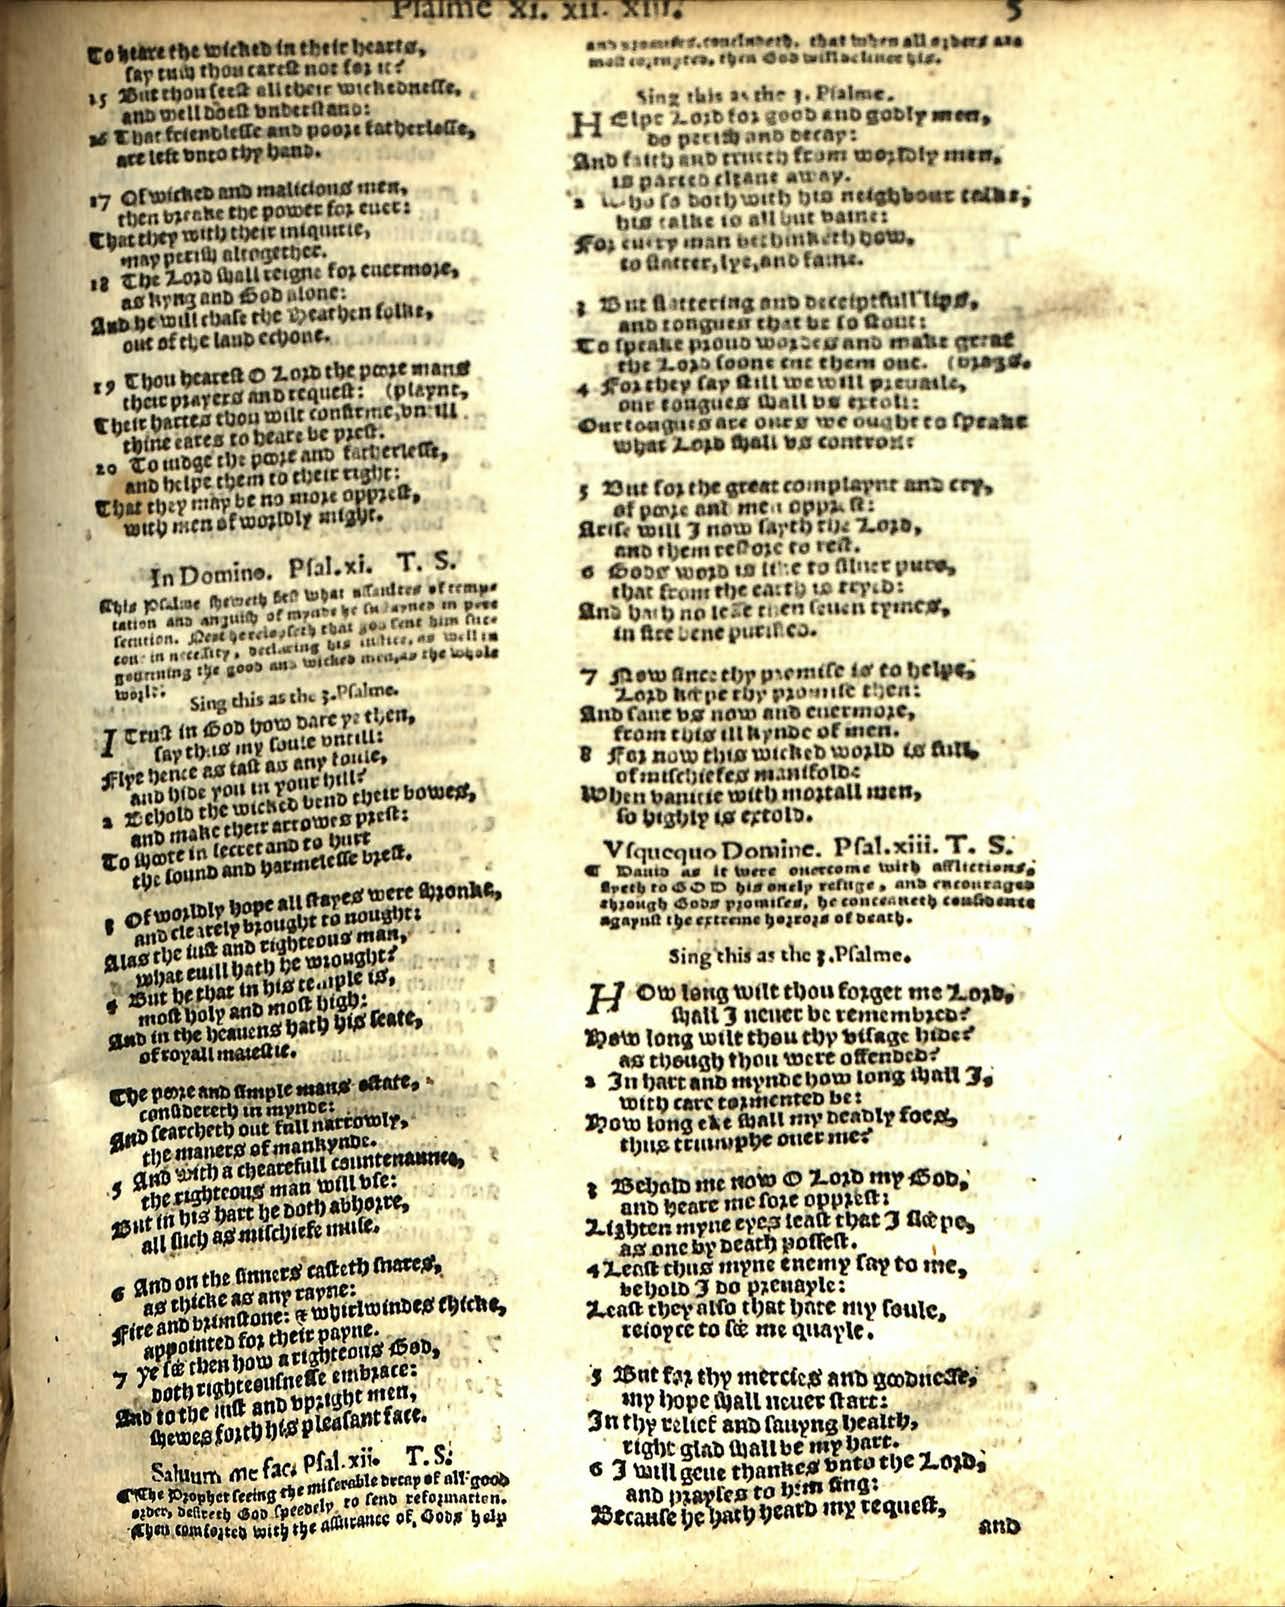 Psalme xi. xii. xiii. 5
To heare the wicked in their hearts,
say tush thou carest not for it?
15 But thou seest all their wickednesse,
and well doest vnderstand:
16 That friendlesse and poore fatherlesse,
are left vnto thy hand.
17 Of wicked and malicious men,
then breake the power for euer:
That they with their iniquitie,
may perish altogether.
18 The Lord shall reigne for euermore,
as kyng and God alone:
And he will chase the Heathen folke,
out of the land echone.
19 Thou hearest O Lord the poore mans
their prayers and request: (playnt,
Their hartes thou wilt confirme, vntill
thine eares to heare be prest.
20 To iudge the poore and fatherlesse,
and helpe them to their right:
That they may be no more opprest,
with men of worldly might.
In Domino. Psal. xi. T. S.
This Psalme sheweth first what assaultes of temp-
tation and anguish of mynde he sustayned in per-
secution. Next he reioyseth that god sent him suc-
cour in necessity, declaring his iustice, as well in
gouerning the good and wicked men, as the whole
world.
Sing this as the 3. Psalme.
I Trust in God how dare ye then,
say thus my soule vntill:
Flye hence as fast as any foule,
and hide you in your hill?
2 Behold the wicked bend their bowes,
and make their arrowes prest:
To shoote in secret and to hurt
the sound and harmelesse brest.
3 Of worldly hope all stayes were shronke,
and clearely brought to nought:
Alas the iust and righteous man,
what euill hath he wrought?
4 But he that in his temple is,
most holy and most high:
And in the heauens hath his seate,
of royall maiestie.
The poore and simple mans estate,
considereth in mynde:
And searcheth out full narrowly,
the maners of mankynde.
5 And with a chearefull countenaunce,
the righteous man will vse:
But in his hart he doth abhorre,
all such as mischiefe muse.
6 And on the sinners casteth snares,
as thicke as any rayne:
Fire and brimstone: & whirlwindes thicke,
appointed for their payne.
7 Ye see then how a righteous God,
doth righteousnesse embrace:
And to the iust and vpright men,
shewes forth his pleasant face.
Saluum me fac. Psal. xii. T. S.
¶ The Prophet seeing the miserable decay of all good
order, desireth God speedely to send reformation.
Then comforted with the assurance of Gods help
and promises, concludeth, that when all orders are
most corrupted, then God will deliuer his.
Sing this as the 3. Psalme.
HElpe Lord for good and godly men,
do perish and decay:
And faith and trueth from worldly men,
is parted cleane away.
2 Who so doth with his neighbour talke,
his talke is all but vaine:
For euery man bethinketh how,
to flatter, lye, and faine.
3 But flattering and deceiptfull lips,
and tongues that be so stout:
To speake proud wordes and make great
the Lord soone cut them out. (brags.
4 For they say still we will preuaile,
our tongues shall vs extoll:
Our tongues are ours we ought to speake
what Lord shall vs controll?
5 But for the great complaynt and cry,
of poore and men opprest:
Arise will I now sayth the Lord,
and them restore to rest.
6 Gods word is like to siluer pure,
that from the earth is tryed:
And hath no lesse then seuen tymes,
in fire bene purified.
7 Now since thy promise is to helpe,
Lord keepe thy promise then:
And saue vs now and euermore,
from this ill kynde of men.
8 For now this wicked world is full,
of mischiefes manifold:
When vanitie with mortall men,
so highly is extold.
Vsquequo Domine. Psal. xiii. T. S.
¶ Dauid as it were ouercome with afflictions,
flyeth to GOD his onely refuge, and encouraged
through Gods promises, he conceaueth confidence
agaynst the extreme horrors of death.
Sing this as the 3. Psalme.
HOw long wilt thou forget me Lord,
shall I neuer be remembred?
How long wilt thou thy visage hide?
as though thou were offended?
2 In hart and mynde how long shall I,
with care tormented be:
How long eke shall my deadly foes,
thus triumphe ouer me?
3 Behold me now O Lord my God,
and heare me sore opprest:
Lighten myne eyes least that I sleepe,
as one by death possest.
4 Least thus myne enemy say to me,
behold I do preuayle:
Least they also that hate my soule,
reioyce to see me quayle.
5 But for thy mercies and goodnesse,
my hope shall neuer start:
In thy relief and sauyng health,
right glad shall be my hart.
6 I will geue thankes vnto the Lord,
and prayses to him sing:
Because he hath heard my request,
and